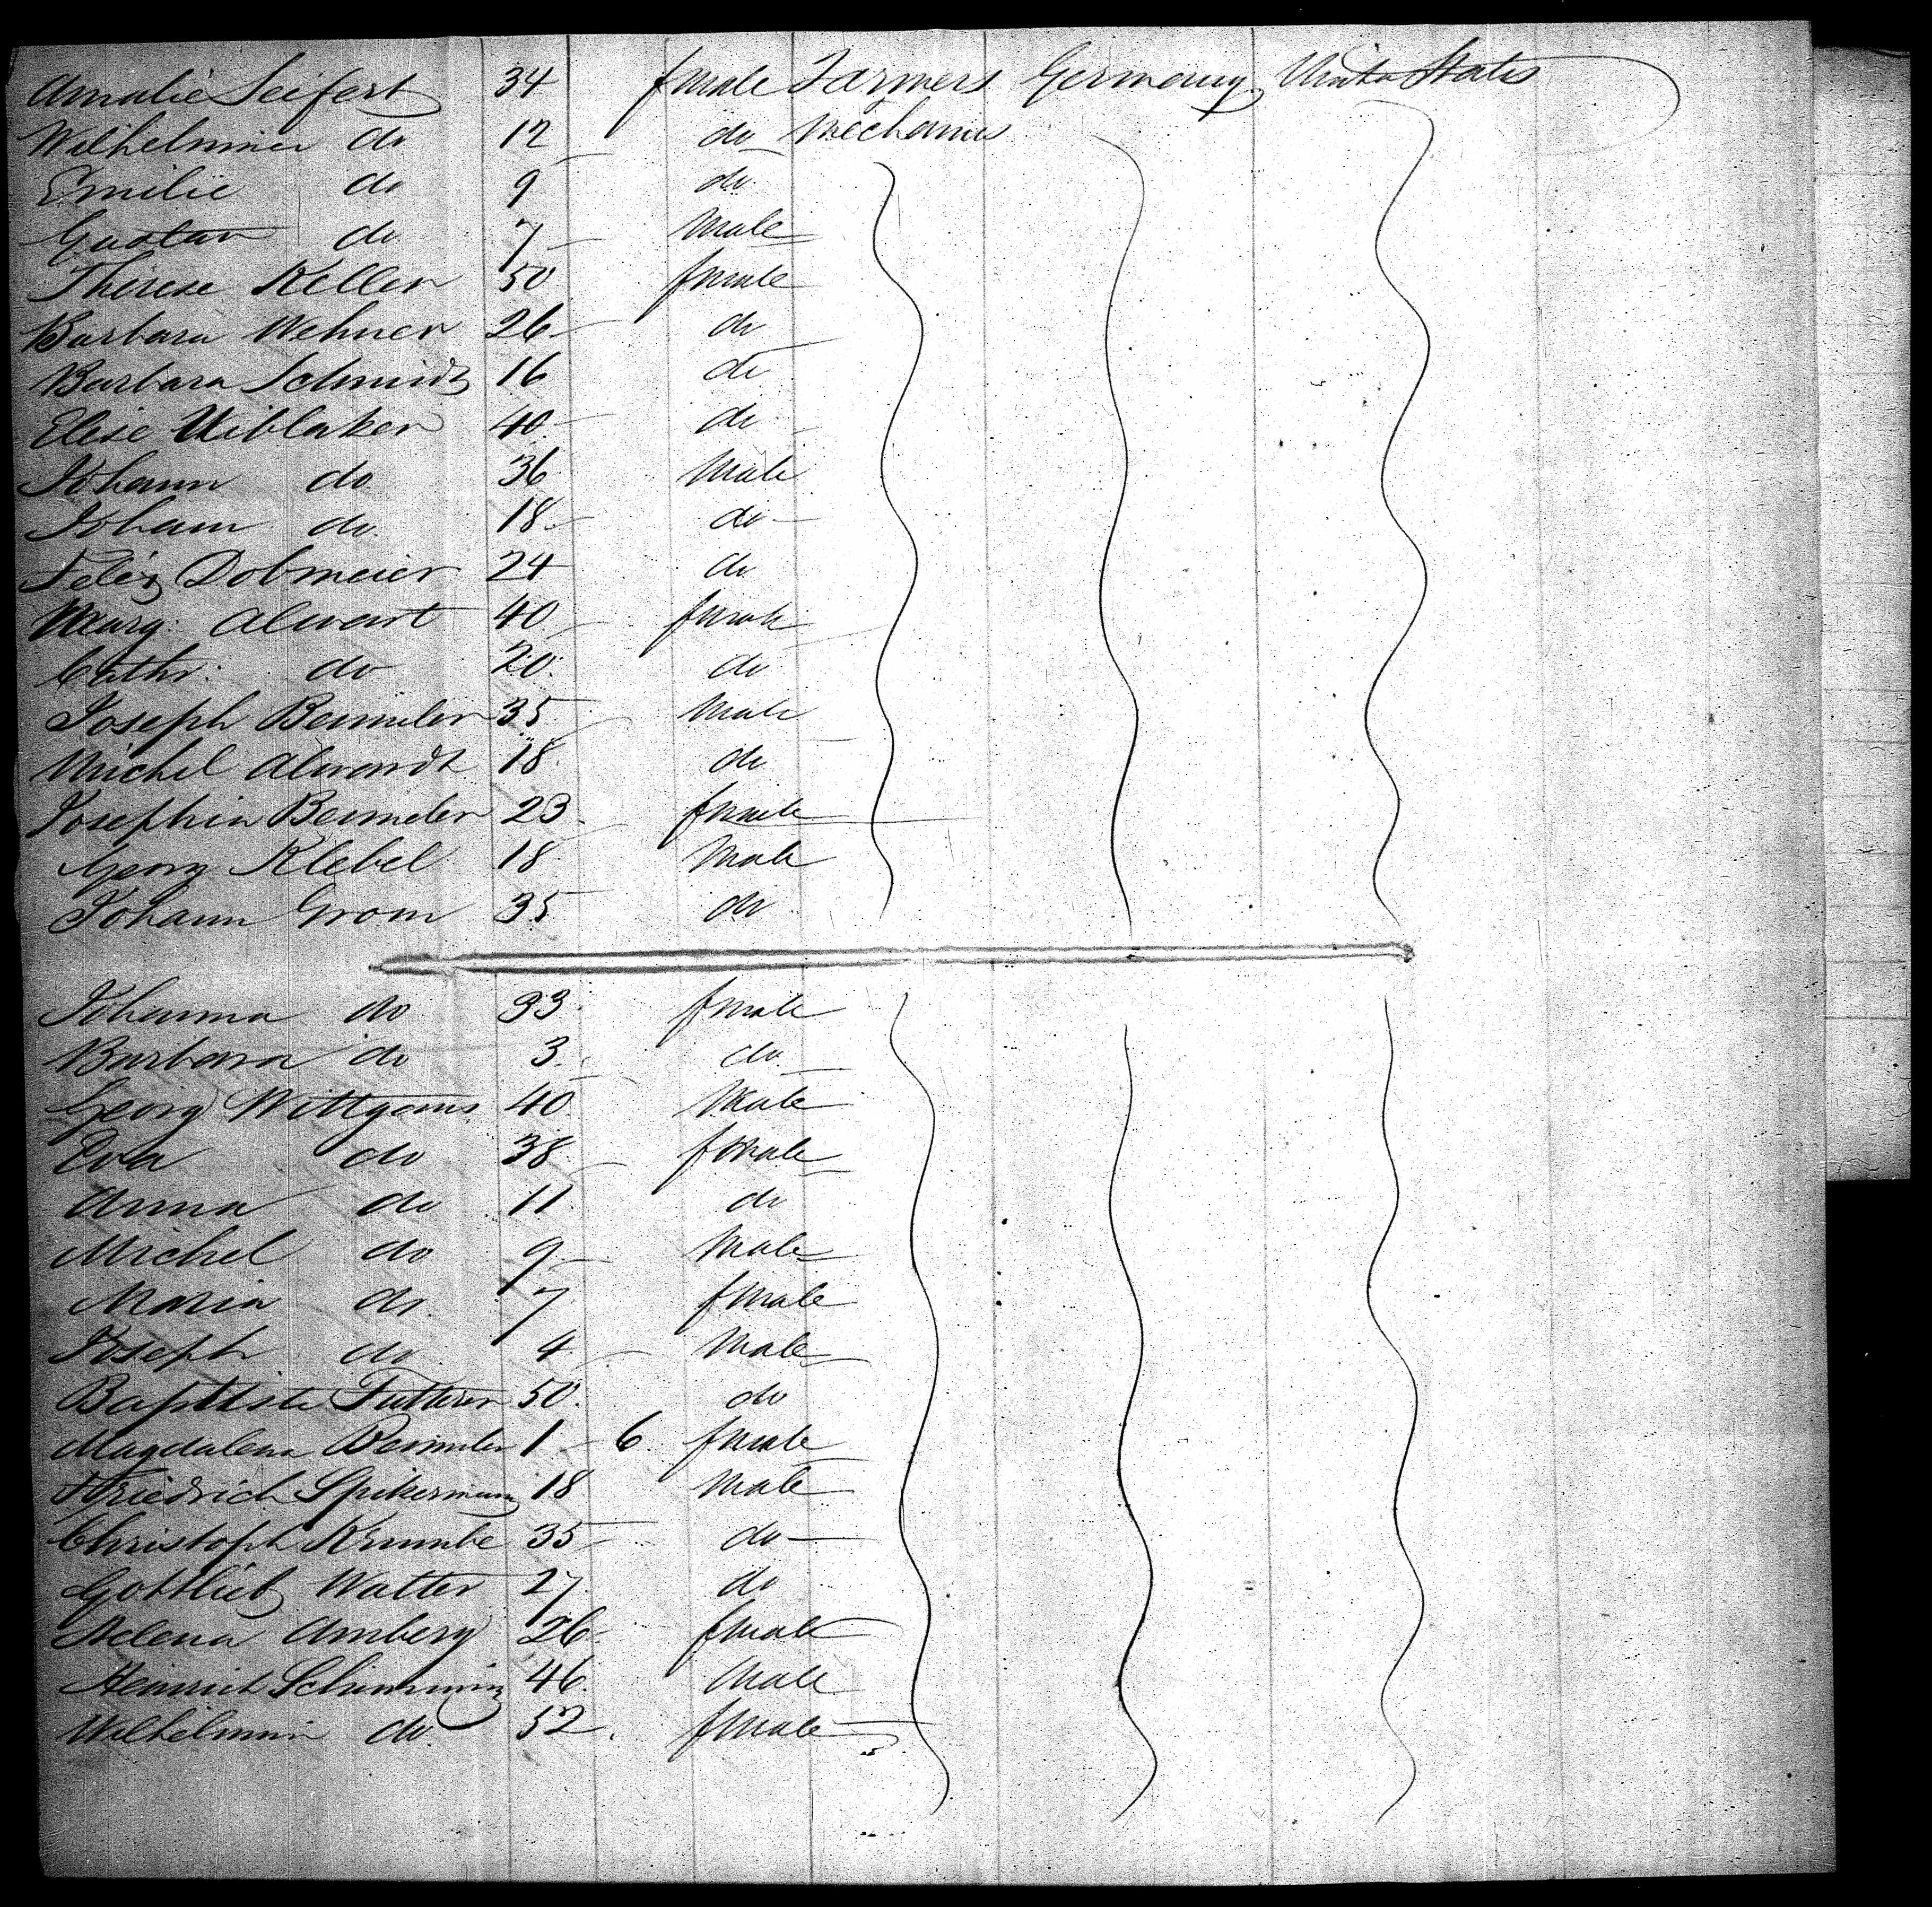 Amalie Seifert 34 female Farmers Germany United States
Wilhelmine do 12 do Mechanics
Emilie do 9 do
Gustav do 7 Male
Therese Keller 50 female
Barbara Wehner 26 do
Barbara Schmidt 16 do
Elise Uiblaker 40 do
Johann do 36 Male
Johann do 18 do
Felix Dobmeier 24 do
Marg: Alwart 40 female
Cathr: do 20 do
Joseph Beimler 35 Male
Michel Alwardt 18 do
Josephin Beimler 23 female
Georg Klebel 18 Male
Johann Grom 35 do
Johanna do 33 female
Barbara do 3 do
Georg Wittgans 40 Male
Eva do 38 female
Anna do 11 do
Michel do 9 Male
Maria do 7 female
Joseph do 4 Male
Baptiste 50 do
Magdalena Beimler 1 6 female
Friedrich Spikermann 18 Male
Christoph Krumbe 35 do
Gottlieb Walter 27 do
Helena Amberg 26 female
Heinrich Schimming 46 Male
Wilhelmin do 52 female